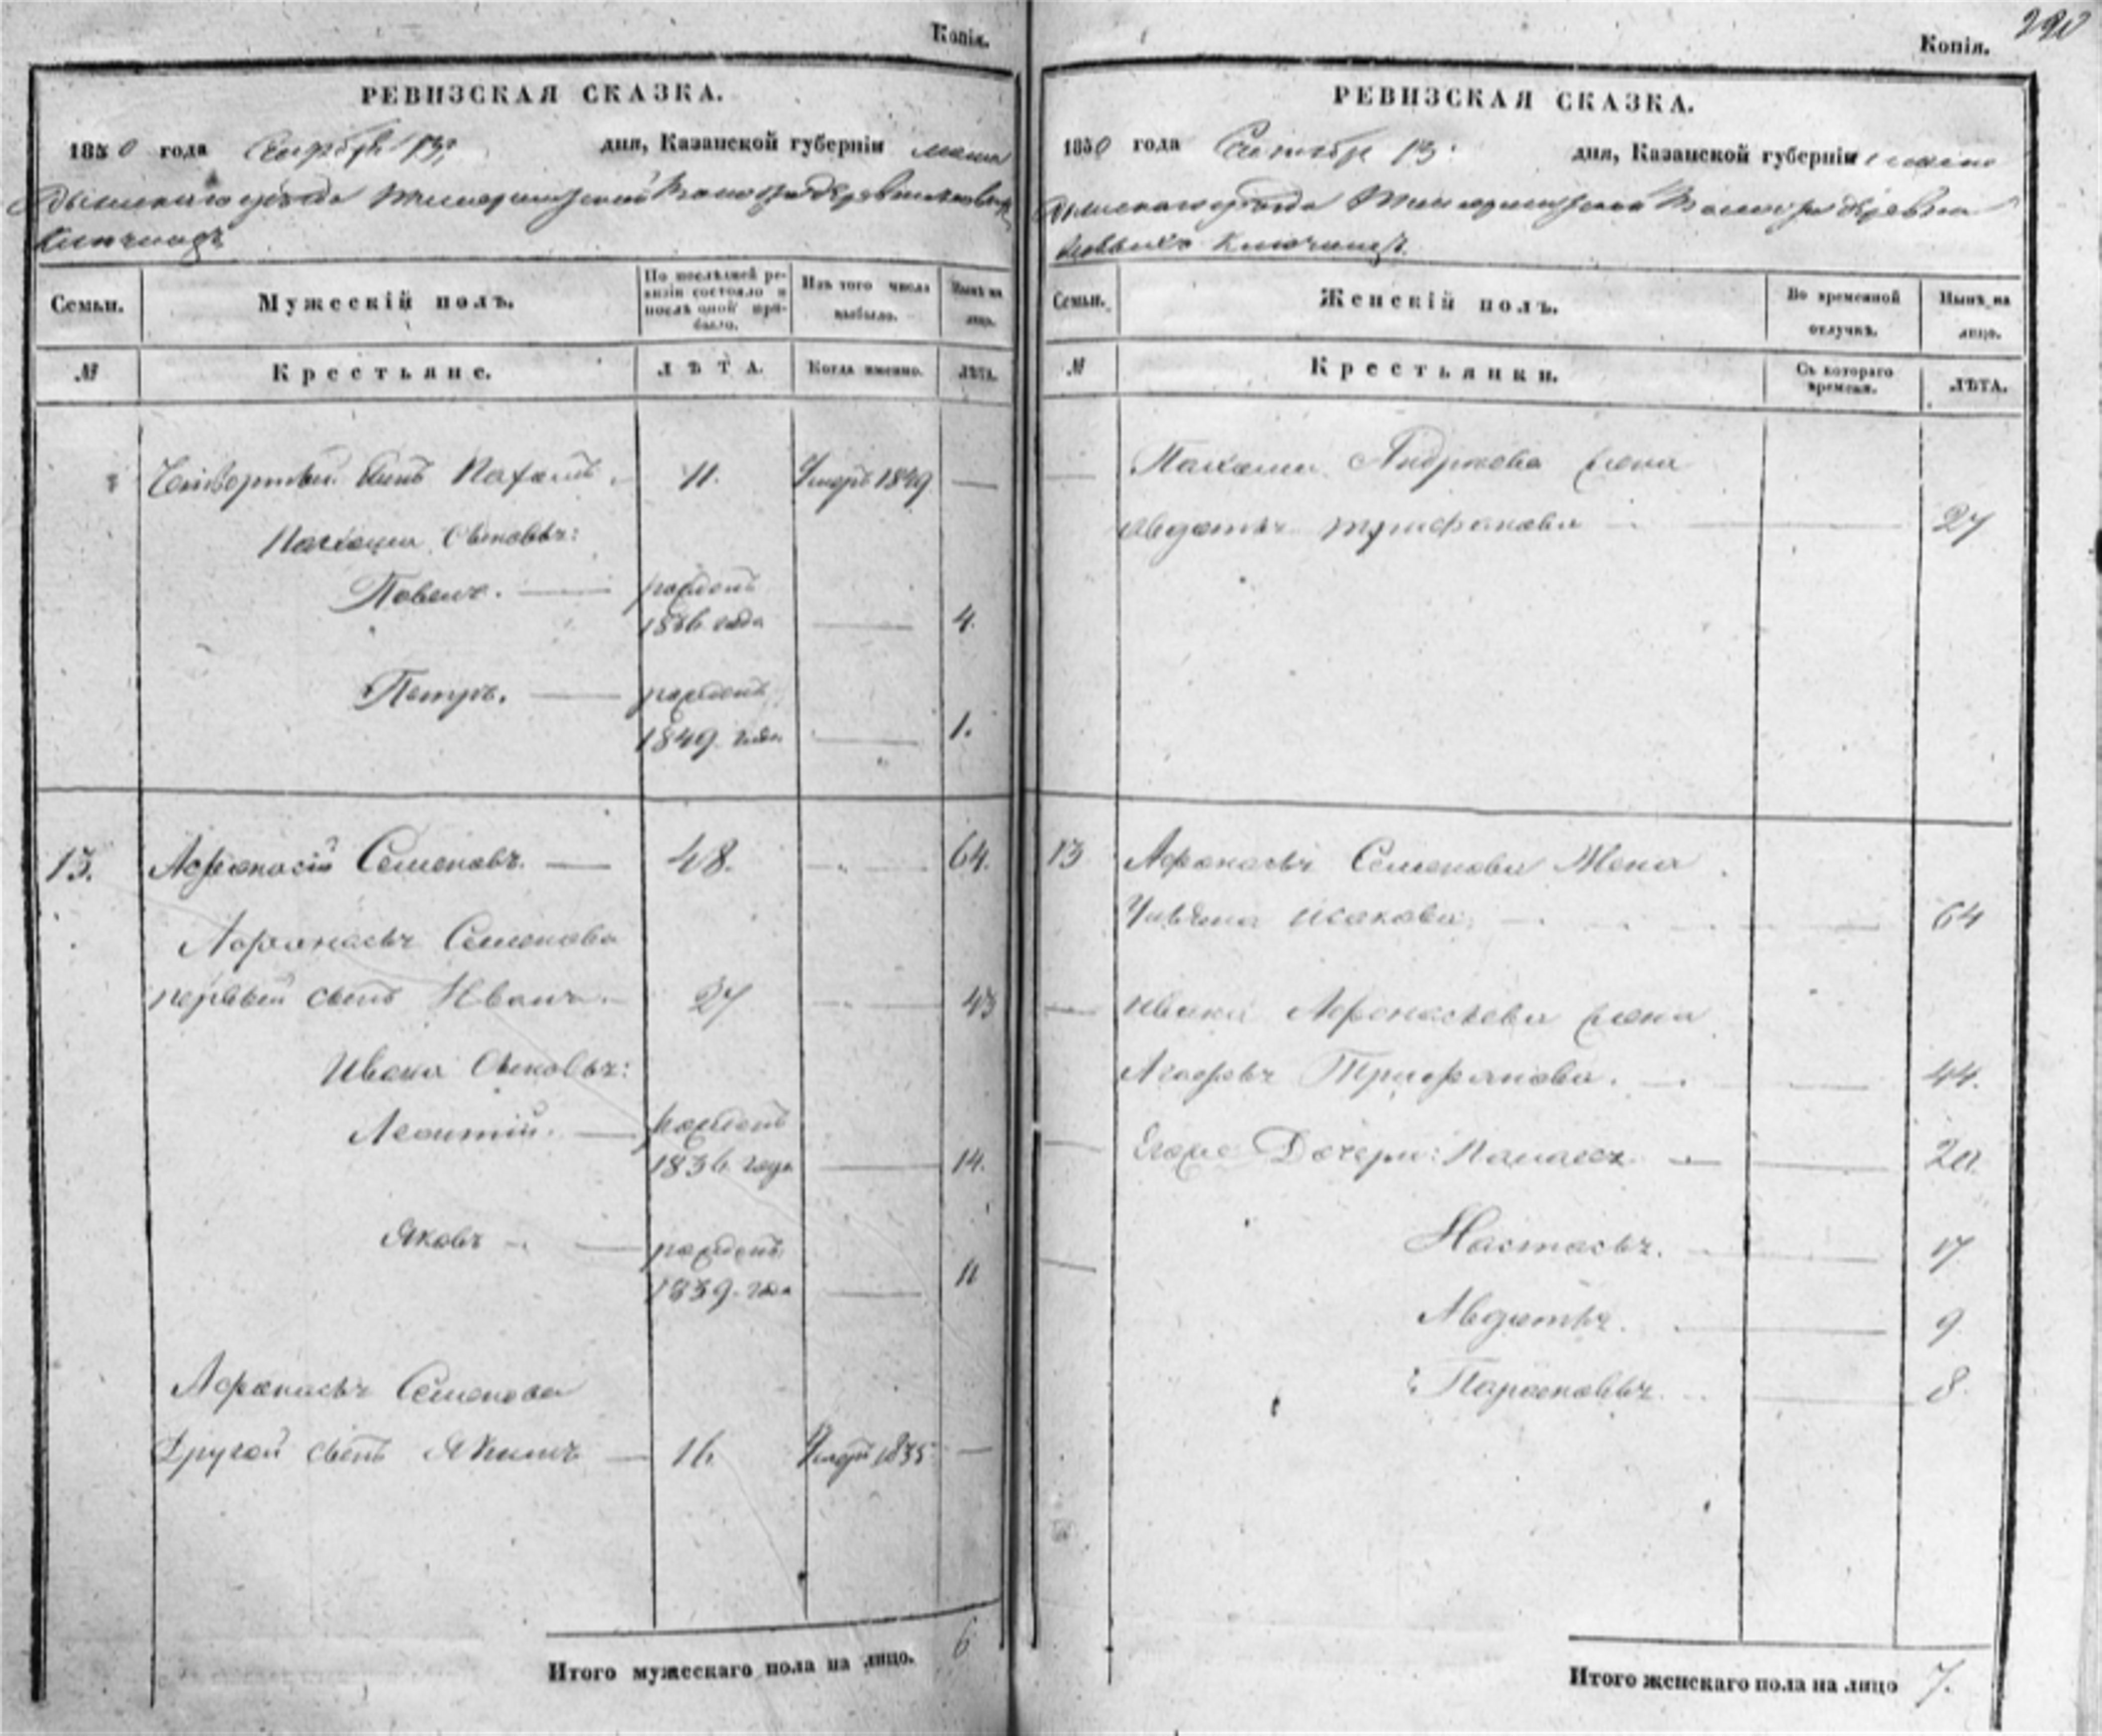 Копія.
РЕВИЗСКАЯ СКАЗКА.
1850 года Сентября 13. дня, Казанской губерніи мама
дышскаго уѣзда Волости деревни
Ключищъ
Семьи.
Мужескій полъ.
По послѣдней ре-
визіи состояло и
послѣ оной при-
было.
Изъ того числа
выбыло.
Нынѣ на
лицо.
№
Крестьяне.
ЛѢТА.
Когда именно.
ЛѢТА.
Четвертый сынъ 11. Умеръ 1849 —
Сыновья:
Павелъ. — рожденъ
1846 года — 4.
Петръ. — рожденъ
1849 года — 1.
13. Афонасій Семеновъ. — 48. — 64.
Афонасья Семенова
первый сынъ Иванъ. 27 — 43
Ивана Сыновья:
Леонтій. — рожденъ
1836 года — 14.
Яковъ — рожденъ
1839 года — 11
Афонасья Семенова
Другой сынъ Якимъ — 16. Умеръ 1835 —
Итого мужескаго пола на лицо. 6
290
Копія.
РЕВИЗСКАЯ СКАЗКА.
1850 года Сентября 13. дня, Казанской губерніи мама
дышскаго уѣзда Волости деревни
Новыхъ Ключищъ.
Семьи.
Женскій полъ.
Во временной
отлучкѣ.
Нынѣ на
лицо.
№
Крестьянки.
Съ котораго
времени.
ЛѢТА.
— Андреева жена
Авдотья Трифонова — 27
13 Афонасья Семенова Жена
Ульяна Исакова — 64
— Ивана Афонасьева жена
Агафья Трифонова. — 44.
— Дочери: — 20.
Настасья. — 17
— Авдотья. — 9
Парасковья. — 8
Итого женскаго пола на лицо 7.